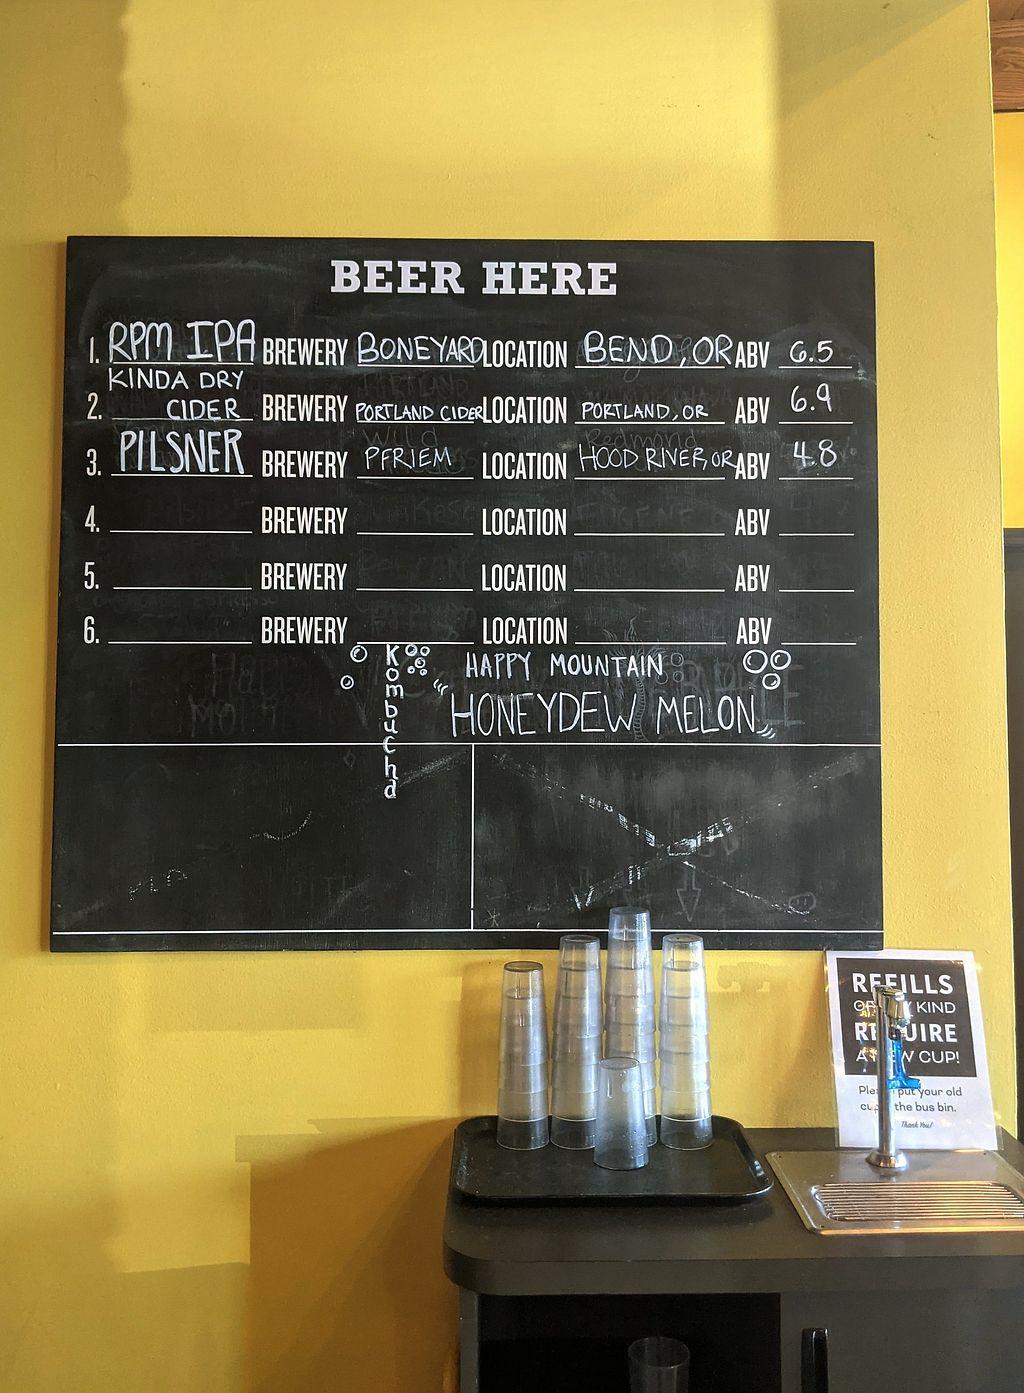 BEER HERE
1. RPM IPA BREWERY BONEYARD LOCATION BEND, OR ABV 6.5
KINDA DRY
2. CIDER BREWERY PORTLAND CIDER LOCATION PORTLAND, OR ABV 6.9
3. PILSNER BREWERY PFRIEM LOCATION HOOD RIVER, OR ABV 4.8
4. BREWERY LOCATION ABV
5. BREWERY LOCATION ABV
6. BREWERY LOCATION ABV
Kombucha
HAPPY MOUNTAIN
HONEYDEW MELON
REFILLS
KIND
REQUIRE
A NEW CUP!
Please put your old
the bus bin.
Thank You!